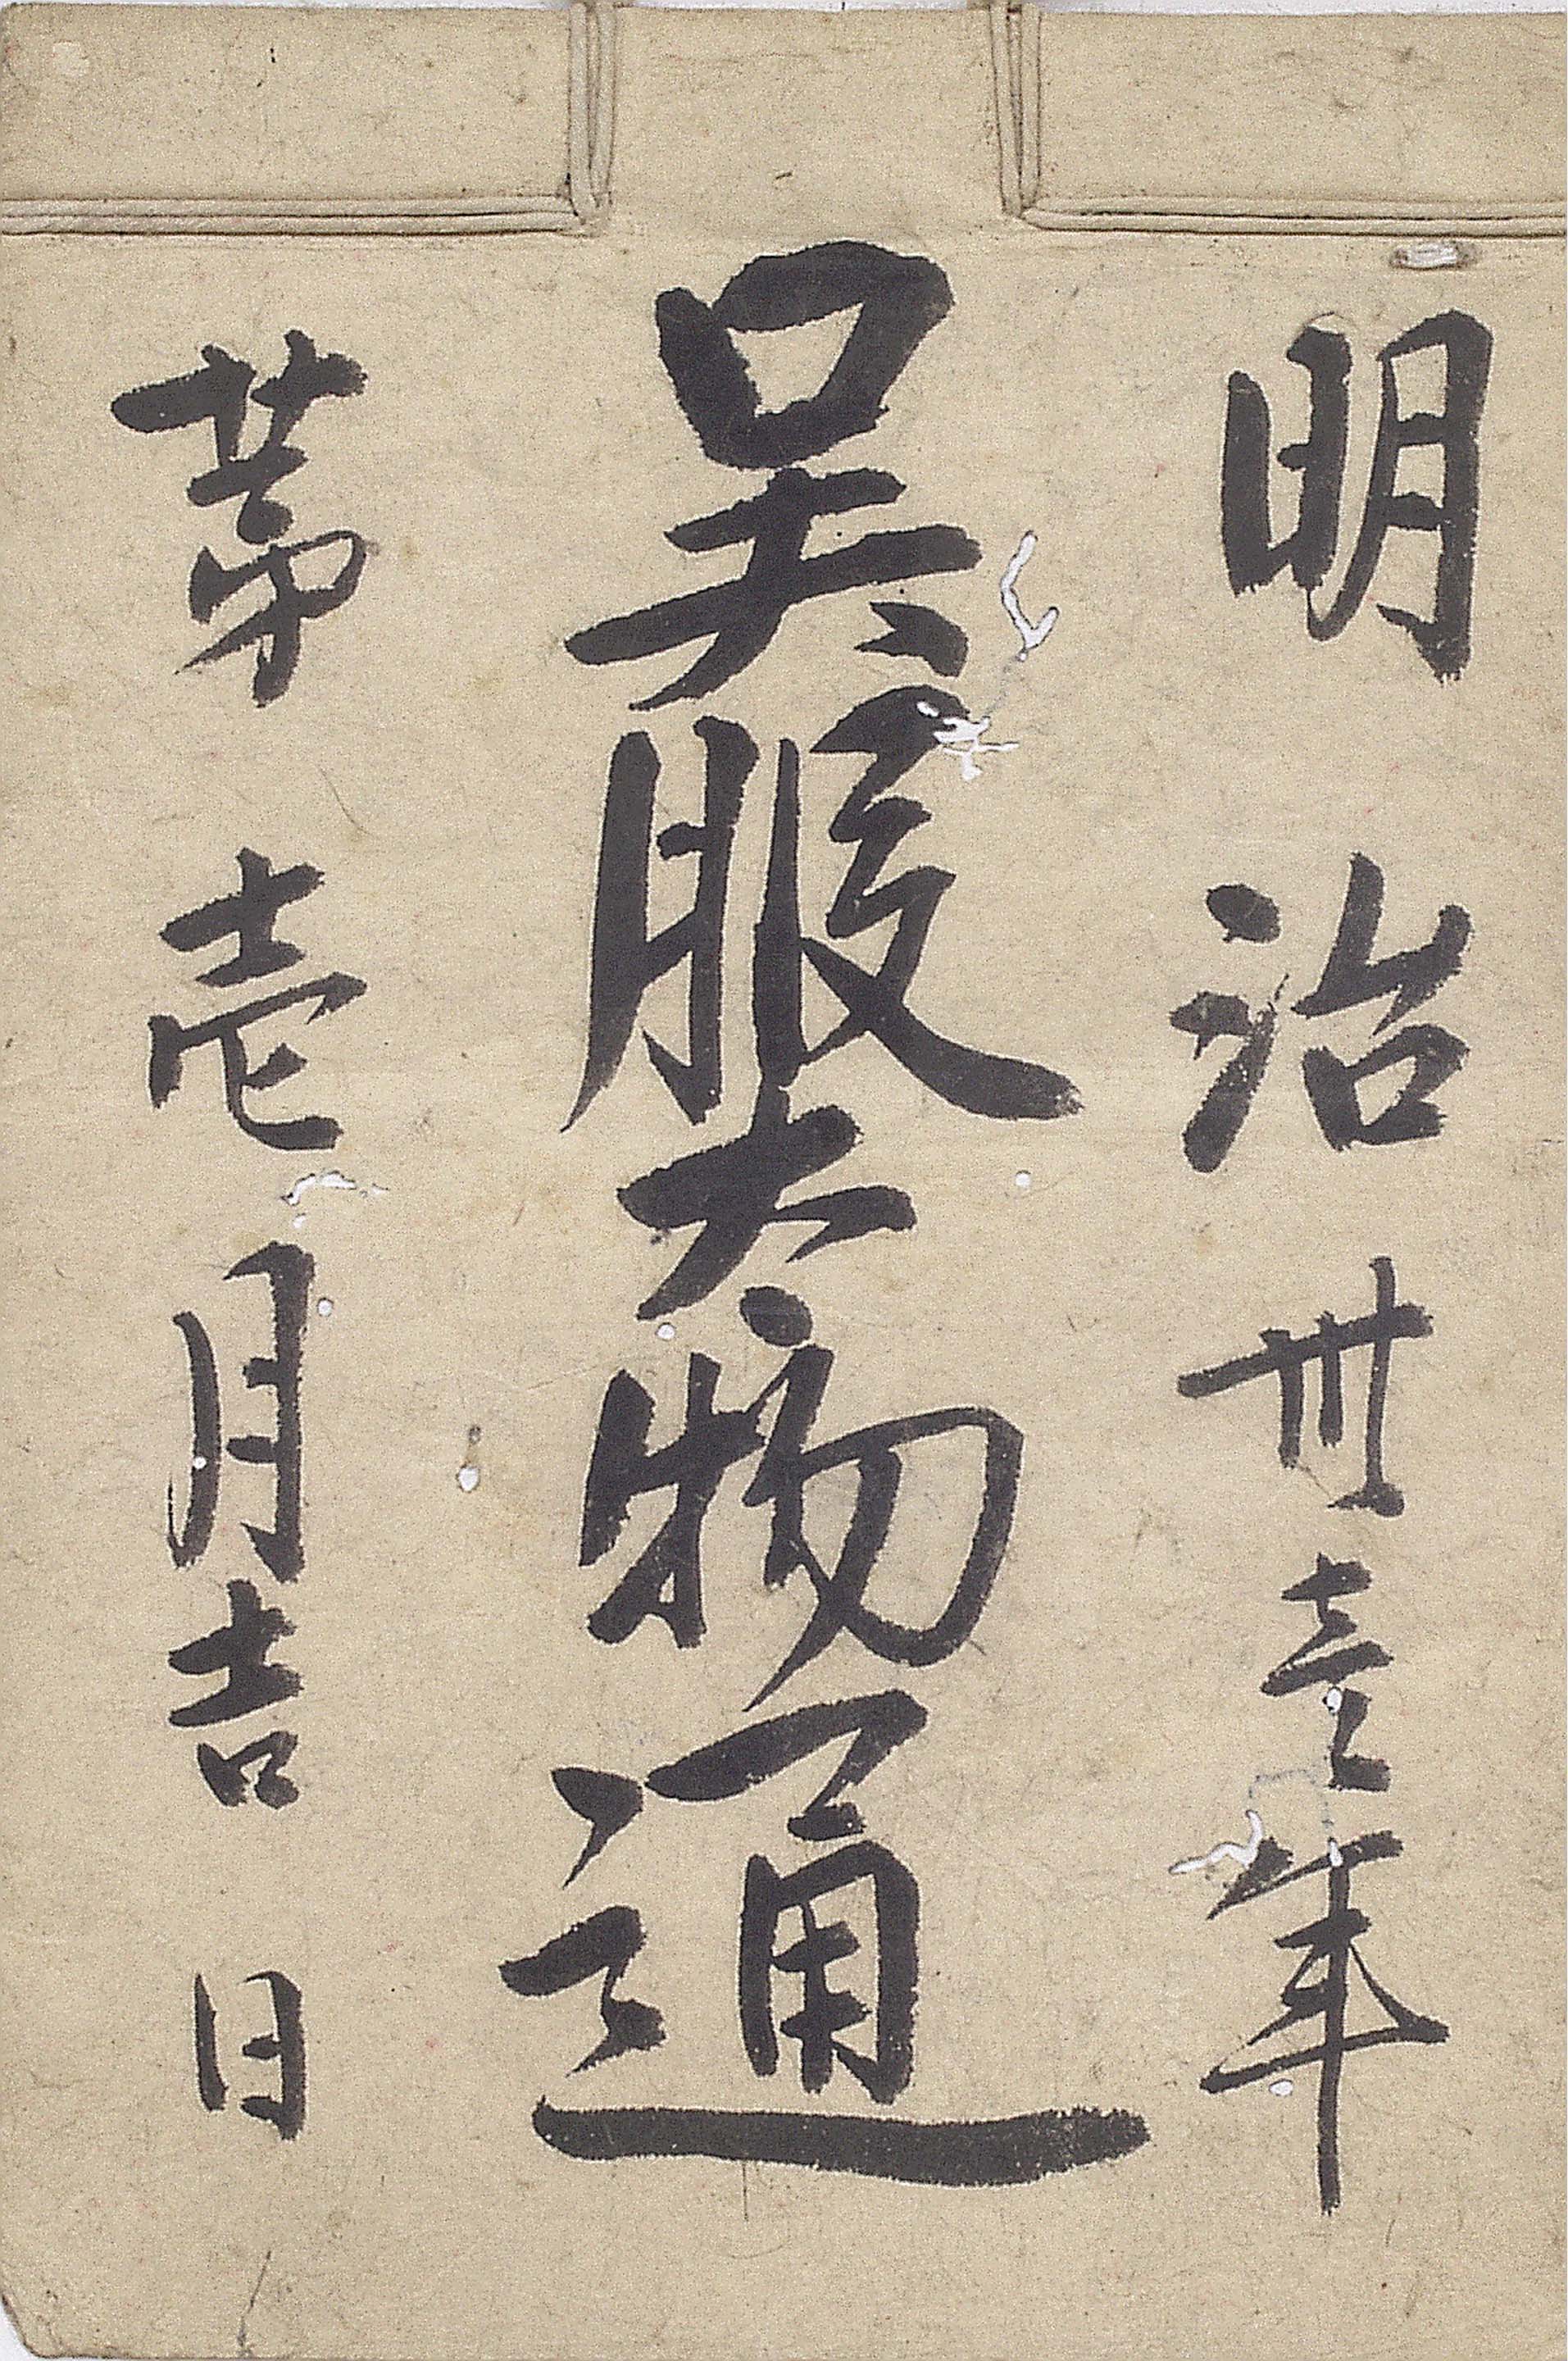 明治卅壱年
呉服太物通
第壱月吉日